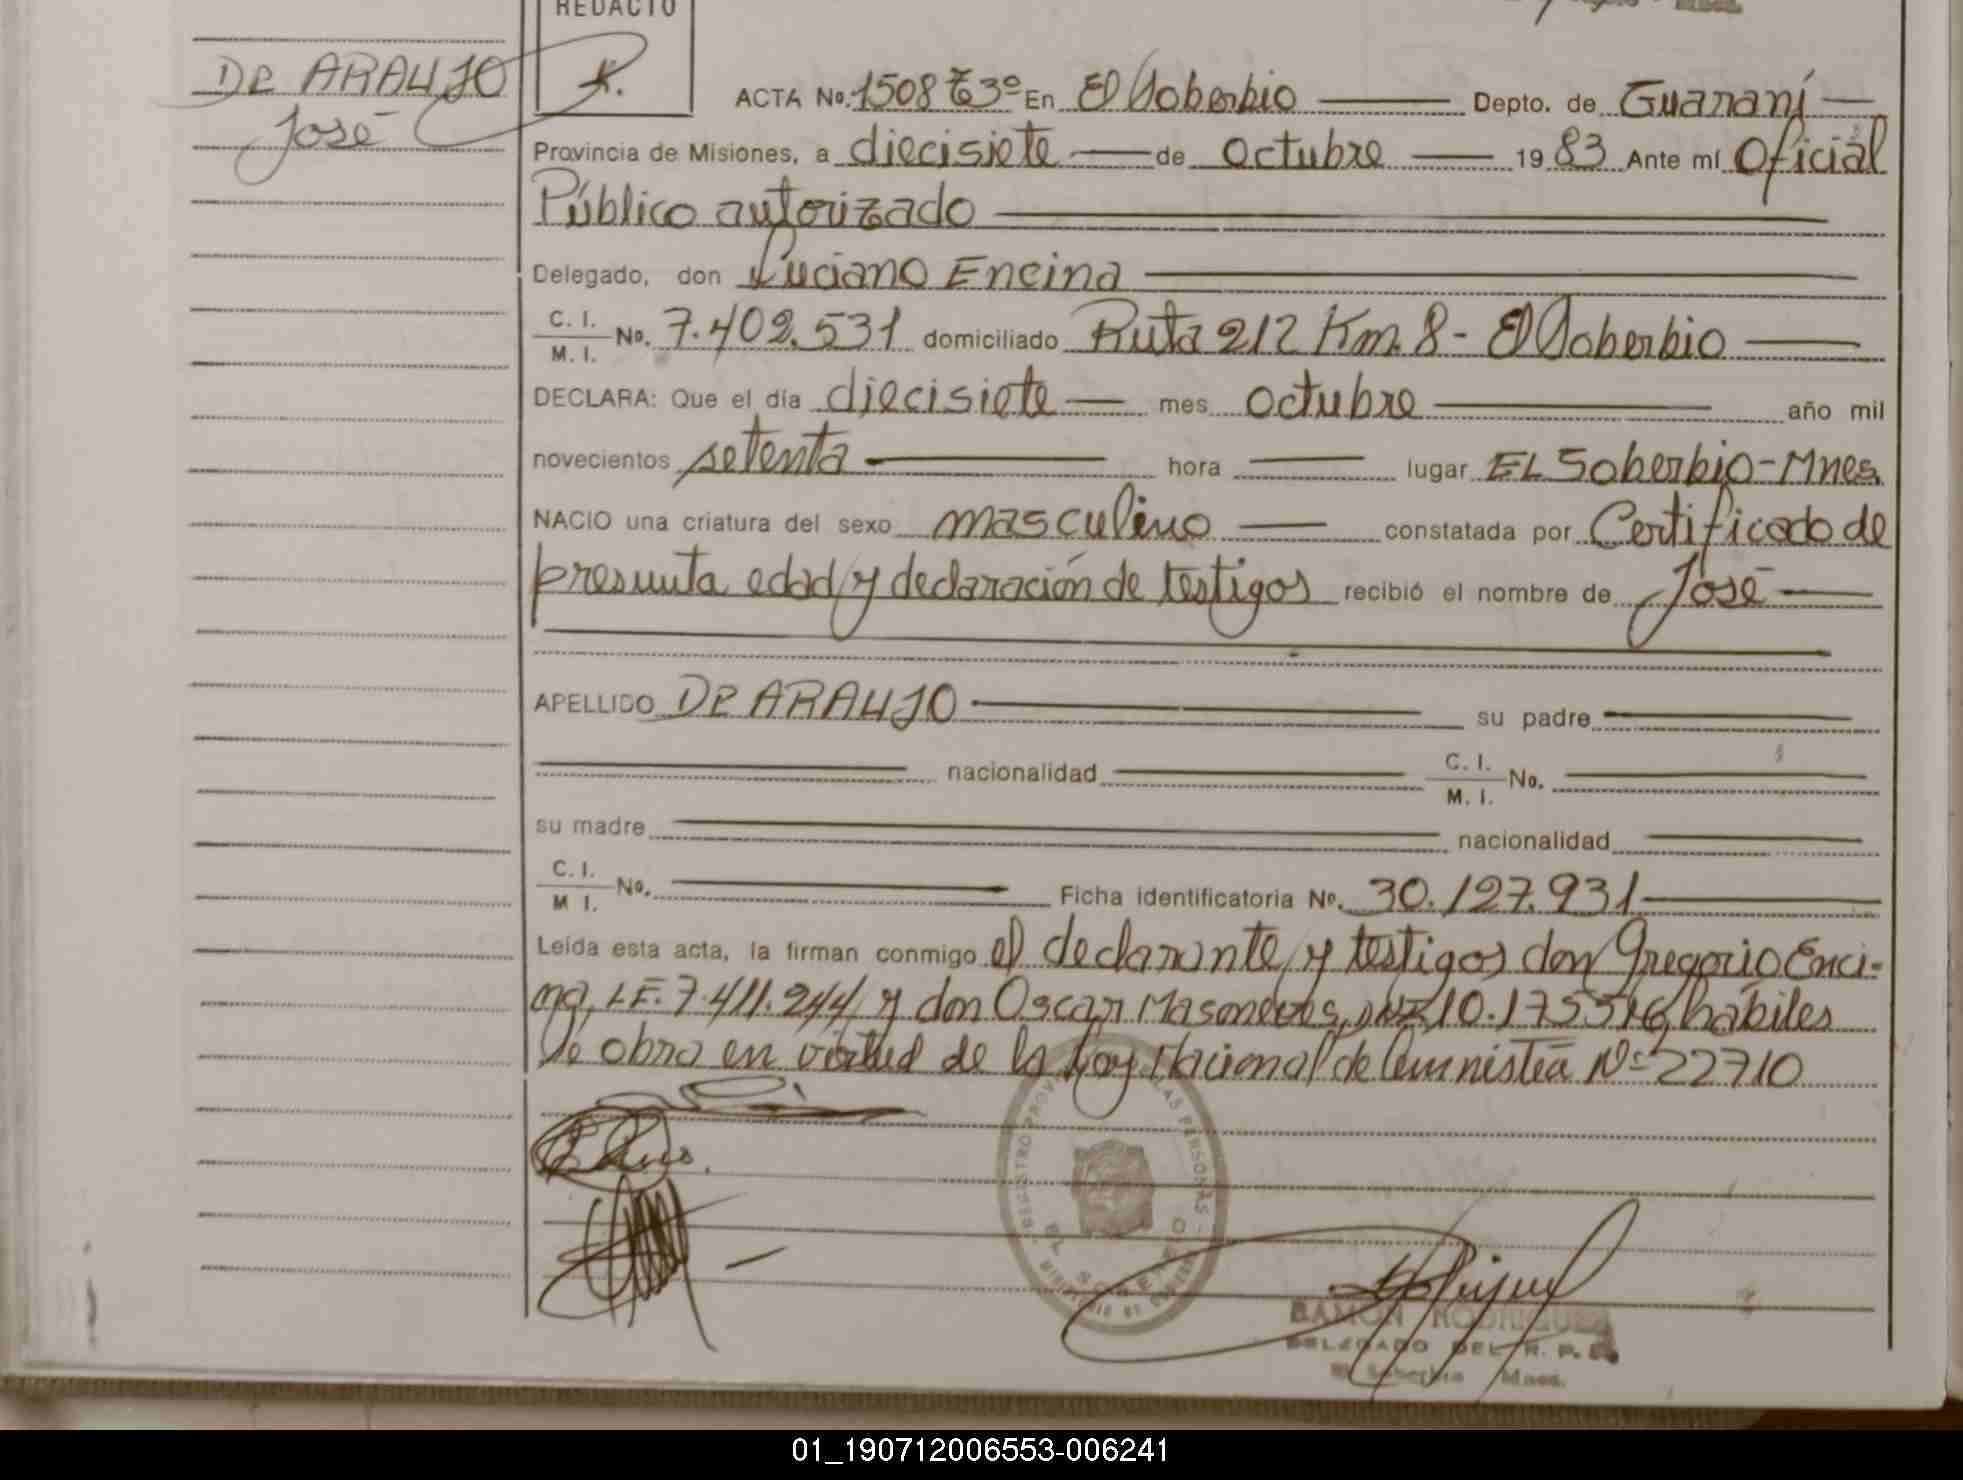 REDACTO
DE ARAUJO
José
ACTA No. 1508 Tº 3º En El Soberbio Depto. de Guaraní
Provincia de Misiones, a diecisiete de octubre 1983 Ante mí Oficial
Público autorizado
Delegado, don Luciano Encina
C. I.
M. I. No. 7.402.531 domiciliado Ruta 212 Km. 8 - El Soberbio
DECLARA: Que el día diecisiete mes octubre año mil
novecientos setenta hora lugar EL Soberbio - Mnes
NACIO una criatura del sexo masculino constatada por Certificado de
presunta edad y declaración de testigos recibió el nombre de José
APELLIDO DE ARAUJO su padre
nacionalidad C. I.
M. I. No.
su madre nacionalidad
C. I.
M I. No. Ficha identificatoria No. 30.127.931
Leída esta acta, la firman conmigo el declarante y testigos don Gregorio Enci-
na, L.E. 7.411.244 y don Oscar hábiles
de obra en virtud de la Ley Nacional de Amnistía Nº 22710
EL SOBERBIO
RAMON RODRIGUEZ
DELEGADO DEL R. P.
El Soberbio Mnes.
01_190712006553-006241